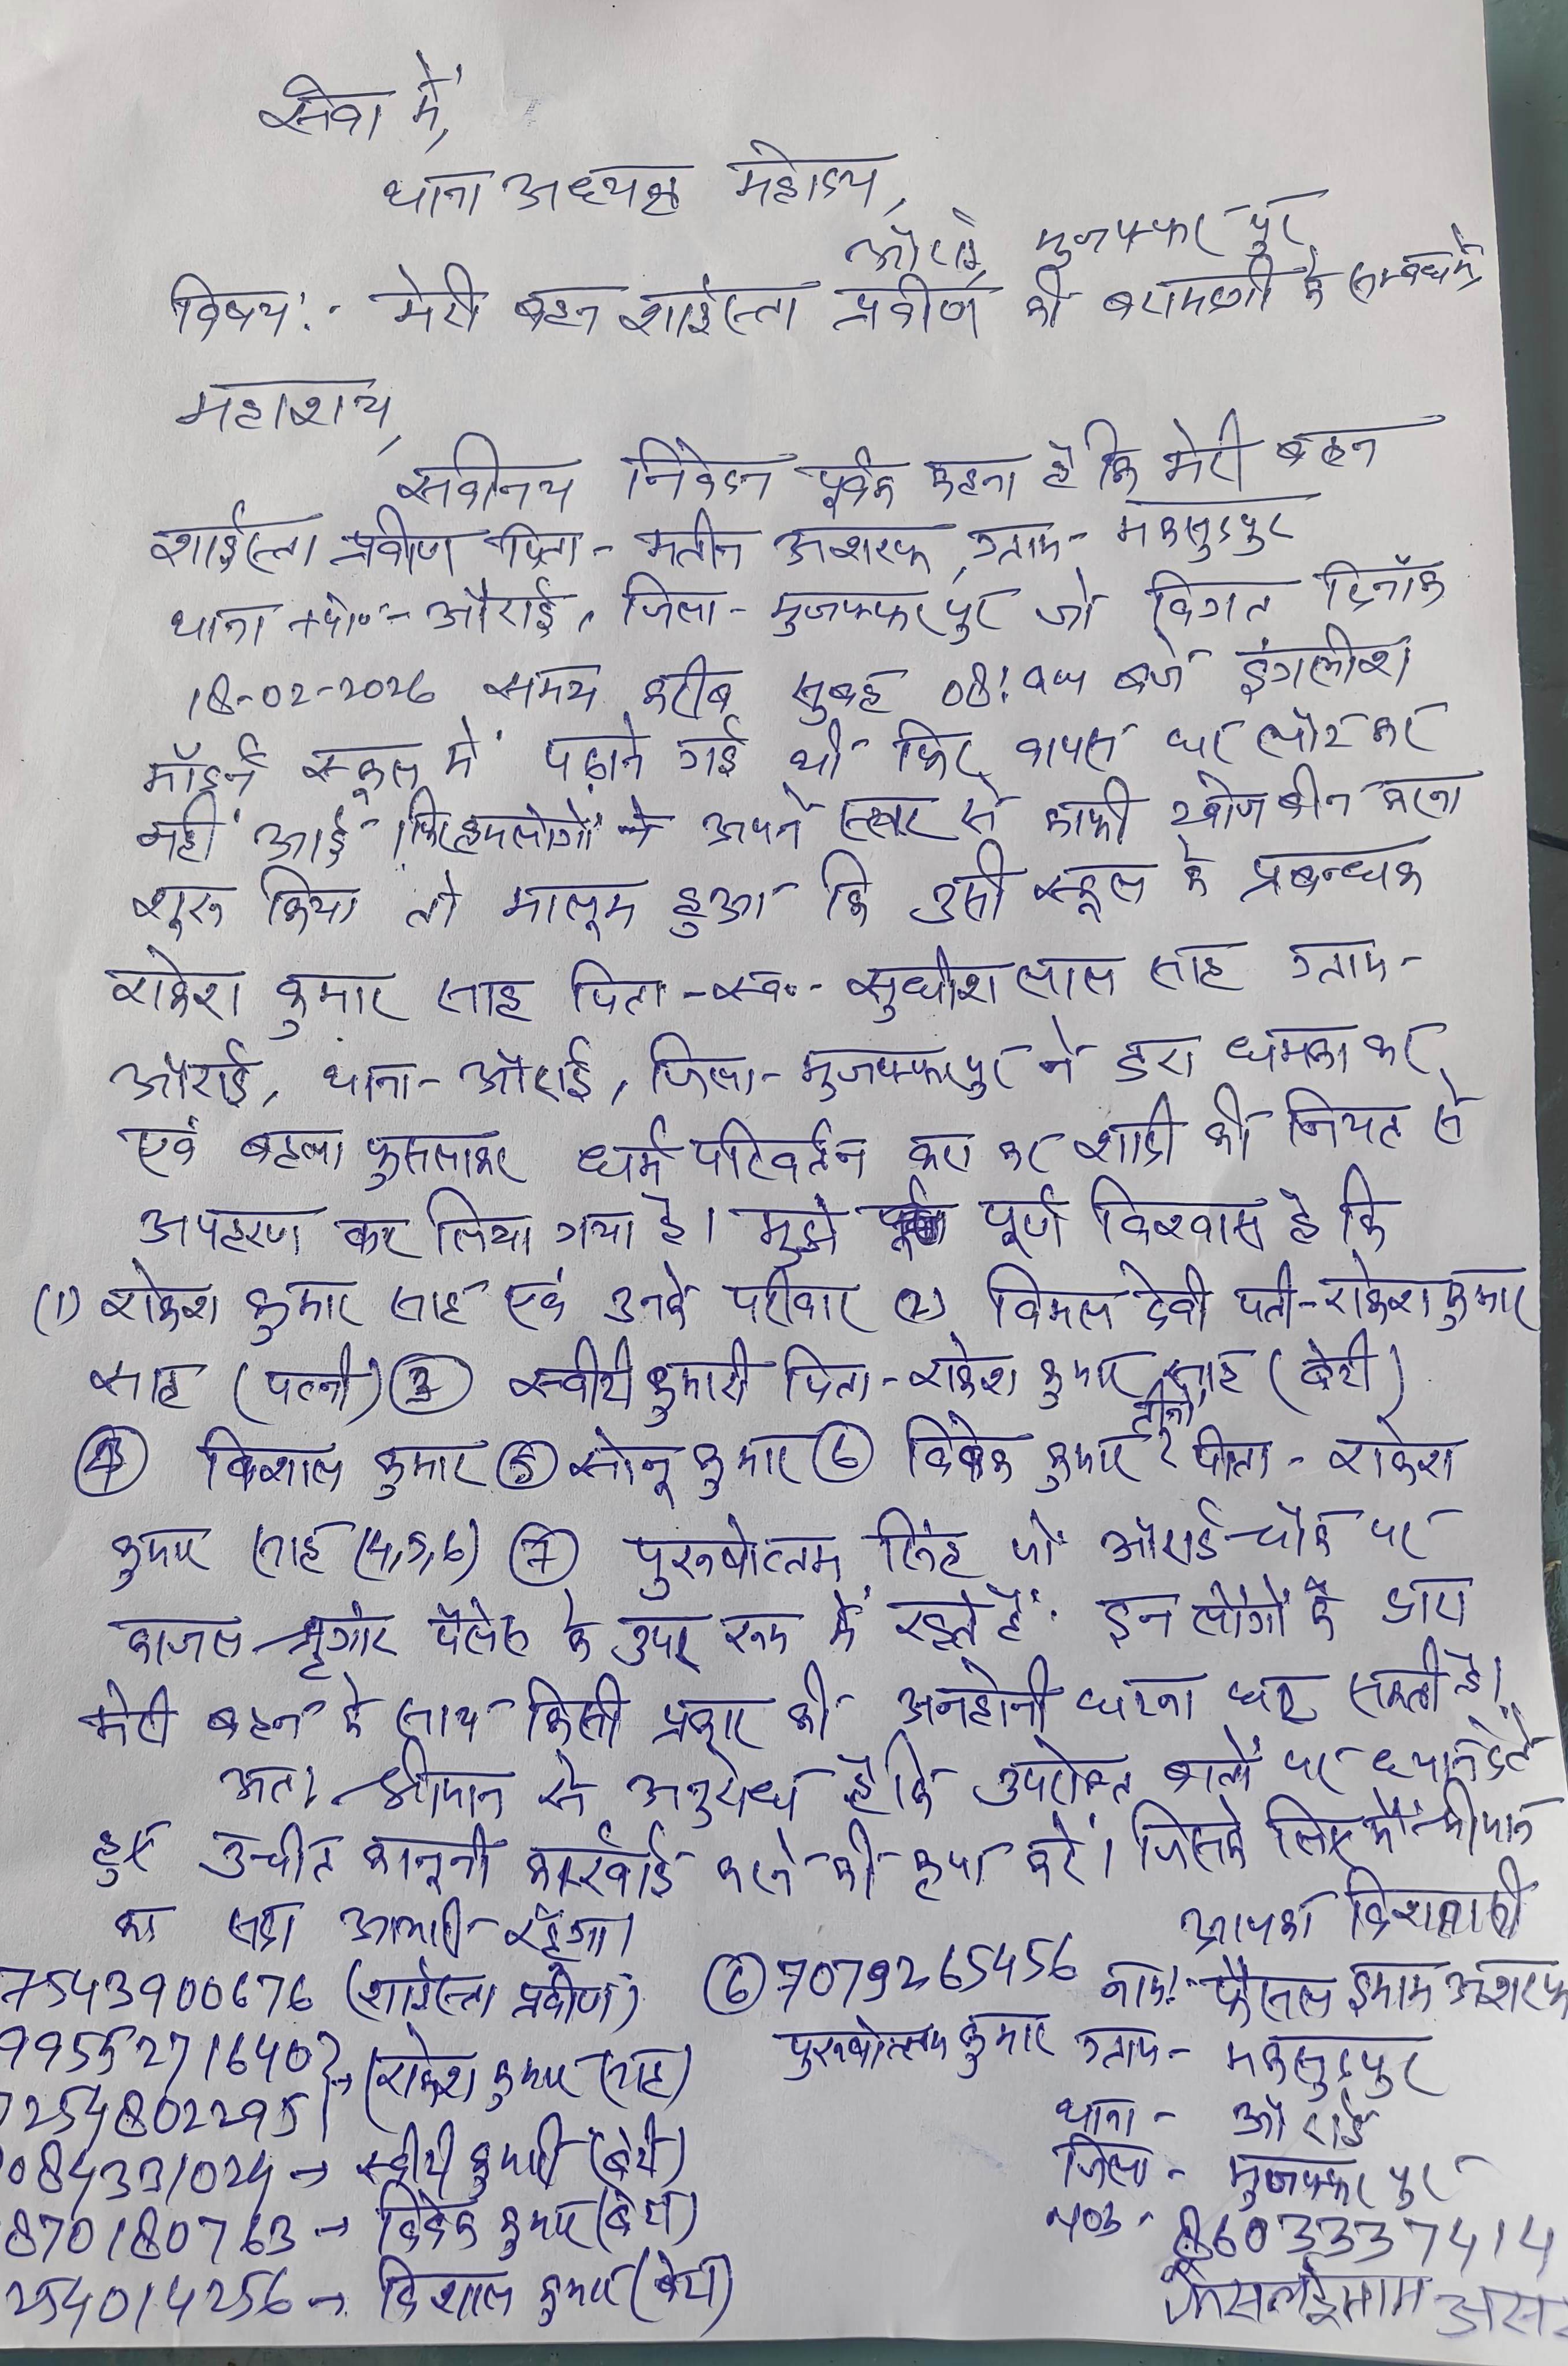 सेवा में,
थाना अध्यक्ष महोदय,
औराई, मुजफ्फरपुर
विषय:- मेरी बहन शाईस्ता प्रवीण की बरामदगी के सम्बंध में,
महाशय,
सवीनय निवेदन पूर्वक कहना है कि मेरी बहन
शाईस्ता प्रवीण पिता- मतीन अशरफ, ग्राम- मकसुदपुर
थाना +पो०- औराई, जिला- मुजफ्फरपुर जो विगत दिनाँक
18-02-2026 समय करीब सुबह 08: बजे इंगलीश
मॉडर्न स्कूल में पढ़ाने गई थी फिर वापस घर लौट कर
नहीं आई। फिर हमलोगों ने अपने स्तर से काफी खोजबीन करना
शुरू किया तो मालूम हुआ कि उसी स्कूल के प्रबन्धक
राकेश कुमार साह पिता-स्व०- सुधीश लाल साह ग्राम-
औराई, थाना- औराई, जिला- मुजफ्फरपुर ने डरा धमका कर
एवं बहला फुसलाकर धर्म परिवर्तन करा कर शादी की नियत से
अपहरण कर लिया गया है। मुझे पूर्ण विश्वास है कि
(1) राकेश कुमार साह एवं उनके परीवार (2) विमल देवी पती-राकेश कुमार
साह (पत्नी) (3) स्वीटी कुमारी पिता- राकेश कुमार साह (बेटी)
(4) विशाल कुमार (5) सोनू कुमार (6) विवेक कुमार तीनों पीता- राकेश
कुमार साह (4,5,6) (7) पुरूषोत्तम सिंह जो औराई चौक पर
काजल श्रृंगार पैलेस के उपर रूम में रहते हैं. इन लोगों के द्वारा
मेरी बहन के साथ किसी प्रकार की अनहोनी घटना घट सकती है।
अतः श्रीमान से अनुरोध है कि उपरोक्त बातों पर ध्यान देते
हुए उचीत कानूनी कारवाई करने की कृपा करें। जिसके लिए मैं श्रीमान
का सदा आभारी रहूँगा।
आपका विश्वासी
7543900676 (शाईस्ता प्रवीण) (6) 7079265456 नाम:- फैसल इमाम अशरफ
9955271640 (राकेश कुमार साह) पुरूषोत्तम कुमार ग्राम- मकसुदपुर
254802295
थाना- औराई
084331024 → स्वीटी कुमारी (बेटी) जिला- मुजफ्फरपुर
870180763 → विवेक कुमार (बेटा) मो०- 8603337414
254014256 → विशाल कुमार (बेटा) फैसल ईमाम